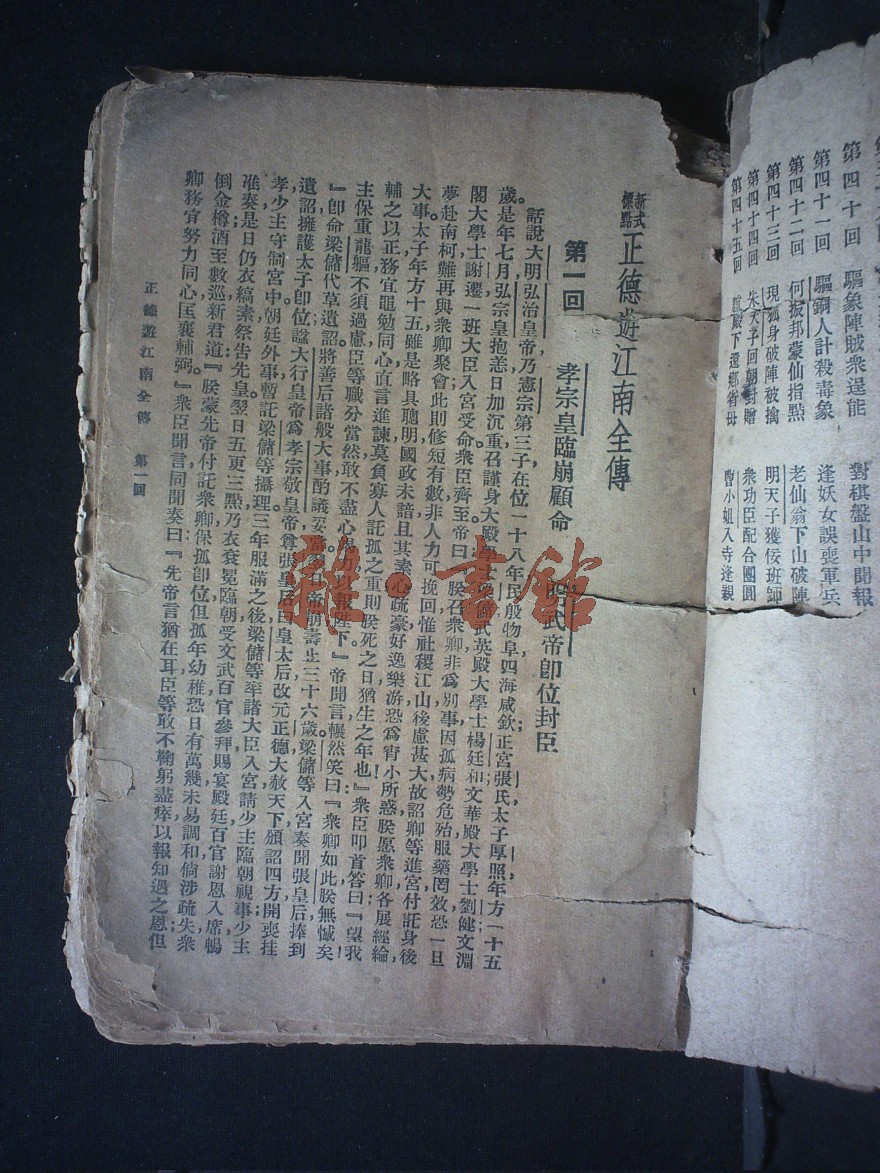 第四十回　驅象陣賊衆逞能　對棋盤山中聞報
第四十一回　驅銅人計殺毒象　逢妖女誤喪軍兵
第四十二回　何振邦蒙仙指點　老仙翁下山破陣
第四十三回　現狐身破陣被擒　明天子獲佞班師
第四十四回　朱天子回朝封贈　衆功臣配合團圓
第四十五回　殿下還鄉省母　曹小姐入寺逢親
新式標點 正德遊江南全傳
第一回　孝宗皇臨崩顧命　武帝卽位封臣
話說大明弘治皇帝，乃憲宗第三子在位一十八年民殷物阜四海咸欽；正宮張氏太子厚照年方一十五
歲。是年七月弘宗皇抱恙日加沉重召謹身大殿學士梁儲武英殿大學士楊廷和文華殿大學士劉健文淵
閣大學士謝遷一班大臣入宮受命衆臣齊至帝曰：『朕召衆卿非爲別事因孤病勢危殆服藥罔效恐一旦
夢赴南柯難再與衆卿聚會此則修短有數非人力可挽回惟社稷江山後慮甚大故詔卿等進宮付託身後
大事。太子年方十五雖是略具聰明國政未諳且其素心疏豪好逸樂游恐爲宵小所惑朕愿衆卿各展經綸
輔之以正務宜黽勉同心直言進諫莫負寡人託孤之重則朕死之日猶生之年也！』衆臣叩首答曰『望我
主保重龍軀不須過慮臣等職分當然敢不盡心以報陛下。』帝聞言輾然笑曰：『衆卿如此朕無憾矣！
』卽命梁儲代草遺詔將善后諸般大事酌議妥當帝崩壽止三十六歲。梁儲等入宮奏聞張皇后捧到
遺詔擁護太子卽位諡大行皇帝爲孝宗敬皇帝尊張皇后曰皇太后改元正德大赦天下頒詔四方開喪挂
孝少主守制宮中朝廷外事暫託梁儲等攝理。三年服滿之後梁儲等率諸大臣入宮請少主臨朝視事少主
准奏是日仍衣縞素祭告先皇翌日五更三點乃衣衮冕臨朝受文武百官參拜賜宴殿廷百官謝恩入席暢
倒金樽酒至數巡新君道『朕蒙先帝付託衆卿保孤卽位但孤年幼稚恐日有萬幾未易調和倘涉疏失衆
卿務宜努力同心匡襄輔弼。』衆臣聞言同聞奏曰『先帝言猶在耳臣等敢不鞠躬盡瘁以報知遇之恩但
正德遊江南全傳　第一回